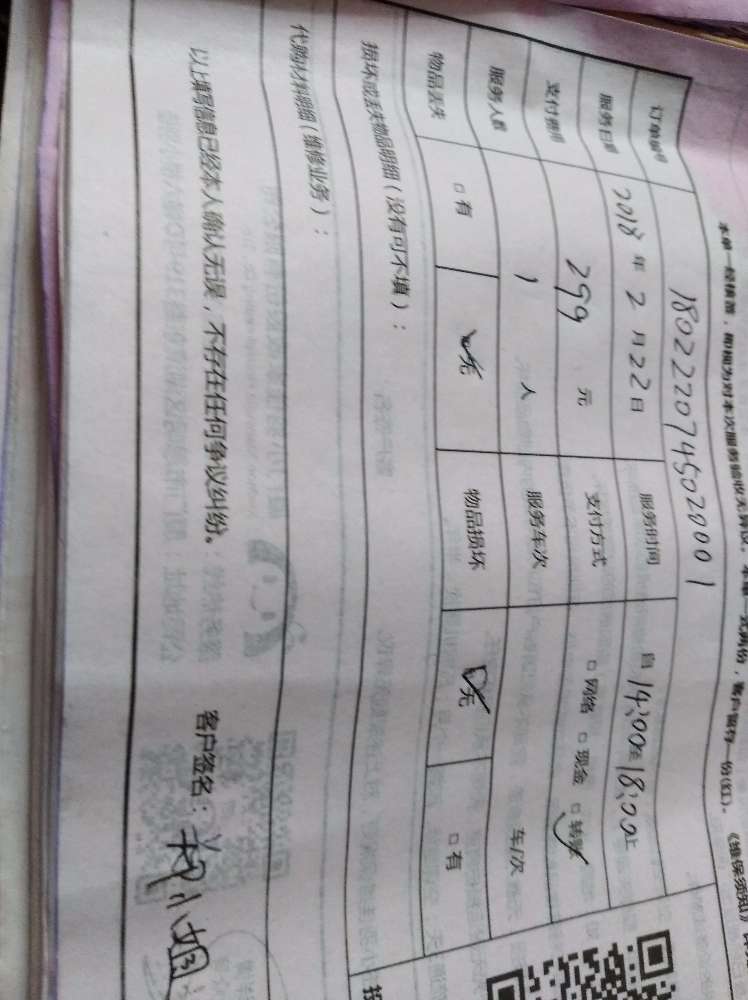 本单一经填写，即视为对本次服务验收无异议。本单一式两份，客户留存一份(红)。《维保须知》
订单编号 1802220745020001
服务日期 2018年2月22日 服务时间 自14:00至18:00止
支付费用 299元 支付方式 □网络 □现金 □转账
服务人数 1人 服务车次 车/次
物品丢失 □有 □无 物品损坏 □无 □有
损坏或丢失物品明细（没有可不填）：
代购材料明细（维修业务）：
以上填写信息已经本人确认无误，不存在任何争议纠纷。 客户签名：
小姐